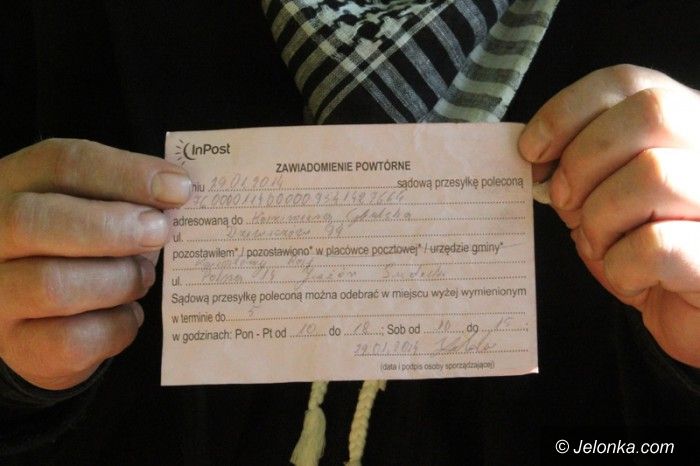 InPost
ZAWIADOMIENIE POWTÓRNE
niu 29.01.2014 sądową przesyłkę poleconą
adresowaną do
ul. 99
pozostawiłem* / pozostawiono* w placówce pocztowej* / urzędzie gminy*
ul. Polna
Sądową przesyłkę poleconą można odebrać w miejscu wyżej wymienionym
w terminie do 5
w godzinach: Pon - Pt od 10 do 18; Sob od 10 do 15;
29.01.2014
(data i podpis osoby sporządzającej)
© Jelonka.com